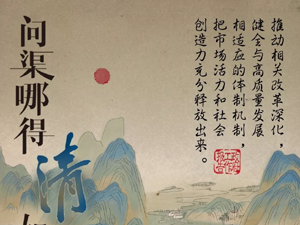 问渠哪得
清
推动相关改革深化，
健全与高质量发展
相适应的体制机制，
把市场活力和社会
创造力充分释放出来。